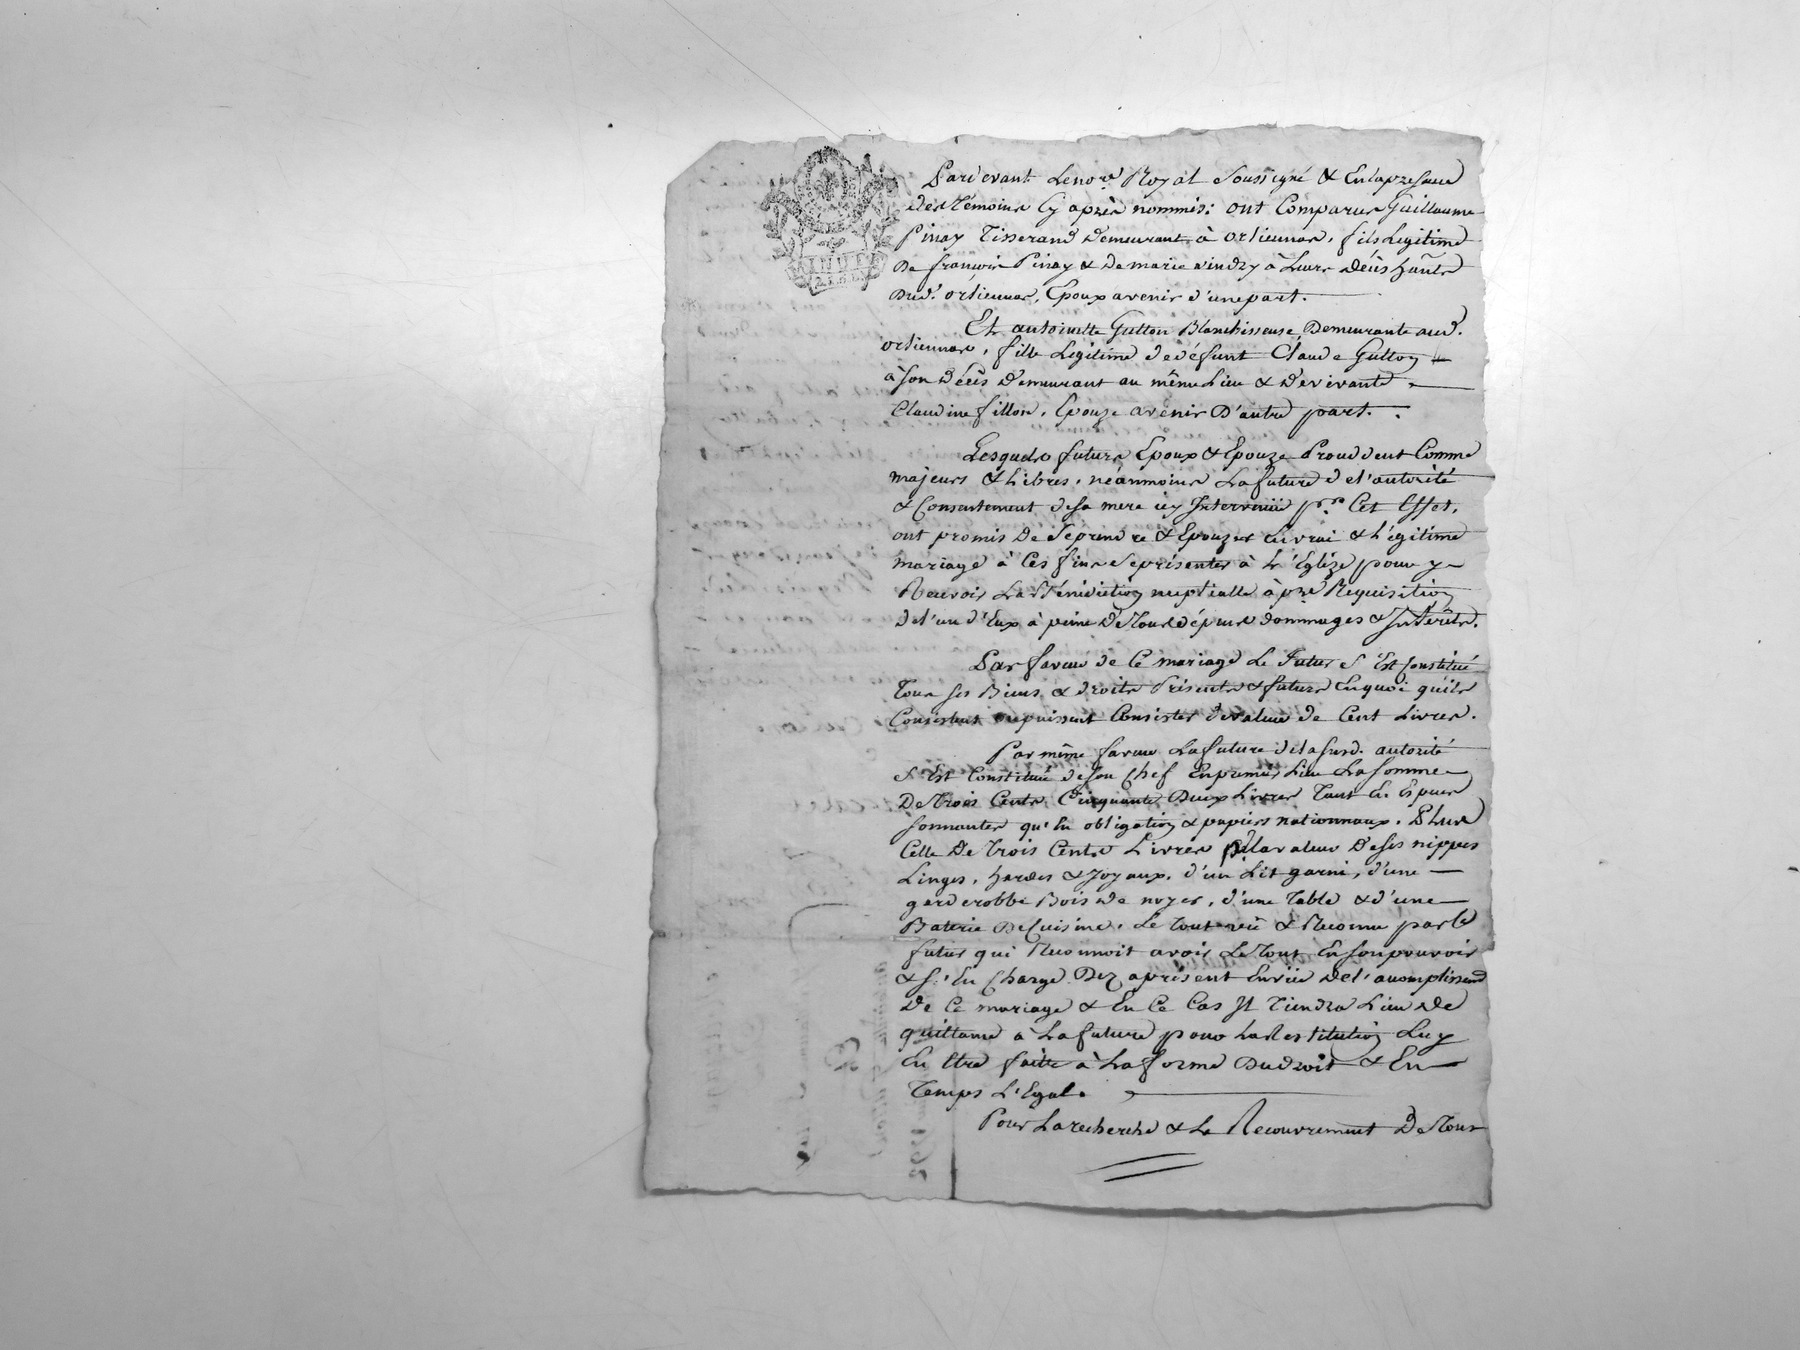 MINUTE
Pardevant Le no.re Royal Soussigné & En la presence
des Témoins Cy après nommés: ont Comparus Guillaume
Pinay Tisserand Demeurant à orliennas, fils Legitime
De françois Pinay & De marie vindry à Leurs décès hants
Dud. orliennas, Epoux avenir d'une part.
Et antoinette Gutton Blanchisseuse Demeurante aud.
orliennas, fille Legitime de défunt Claude Gutton
à son décès Demeurant au même Lieu & De vivante
Claudine fillon, Epouze avenir D'autre part.
Lesquels futurs Epoux & Epouze Procedent Comme
majeurs & Libres, néanmoins La future de l'autorité
& Consentement de sa mere icy Intervenüe p.r Cet Effet,
ont promis De Se prendre & Epouzer En vrai & Légitime
mariage à Ces fins Se présenter à L'Eglize pour y
Recevoir La Bénédiction nuptialle à p.re Requisition
de l'un d'Eux à peine De Tous dépens dommages & Intérêts.
Par faveur de Ce mariage Le futur S'Est Constitué
Tous ses Biens & droits Présents & futurs En quoi qu'ils
Consistent ou puissent Consister de valeur de Cent Livres.
Par même faveur La future de la susd. autorité
S'Est Constitué de son Chef En premier Lieu La Somme
De Trois Cents Cinquante Deux Livres Tant En Especes
sonnantes qu'En obligation & papiers nationnaux. Plus
Celle De Trois Cents Livres p.r La valeur De ses nippes
Linges, hardes & Joyaux, d'un Lit garni, d'une
garderobbe Bois De noyer, d'une Table & d'une
Baterie De Cuisine. Le Tout vû & Reconnu par le
futur qui Reconnoit avoir Le Tout En son pouvoir
& S'En Charge Dez aprésent En vüe de l'accomplissem.t
De Ce mariage & En Ce Cas Il Tiendra Lieu De
quittance à La future pour La Restitution Luy
En Etre faitte à La forme Du droit & En
Temps L'Egal.
Pour La recherche & Le Recouvrement De Tous